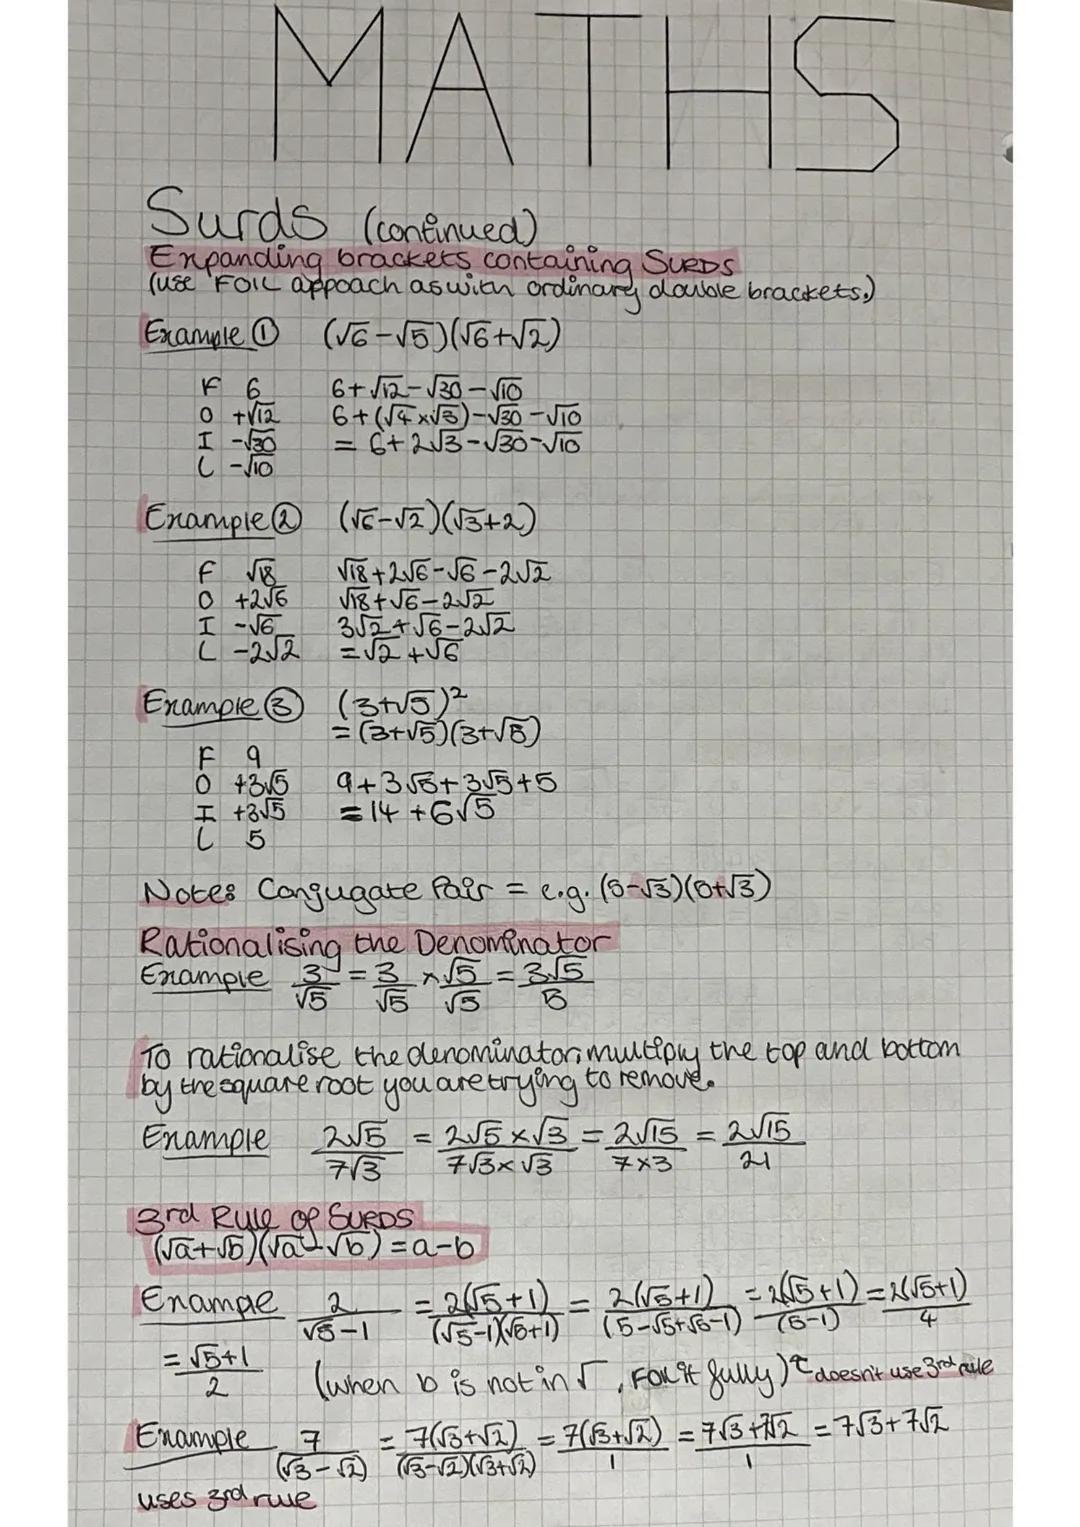 MATHS
Surds (continued)
Expanding brackets containing SURDS
(use FOIL appoach as with ordinary double brackets.)
Example ① (√6-√5)(√6+√2)
F 6 6+√12-√30-√10
O +√12 6+(√4×√3)-√30-√10
I -√30 = 6+2√3-√30-√10
L -√10
Example ② (√6-√2)(√3+2)
F √18 √18+2√6-√6-2√2
O +2√6 √18+√6-2√2
I -√6 3√2+√6-2√2
L -2√2 =√2+√6
Example ③ (3+√5)²
=(3+√5)(3+√5)
F 9
O +3√5 9+3√5+3√5+5
I +3√5 =14+6√5
L 5
Note: Conjugate Pair = e.g. (5-√3)(5+√3)
Rationalising the Denominator
Example 3/√5 = 3/√5 × √5/√5 = 3√5/5
To rationalise the denominator, multiply the top and bottom
by the square root you are trying to remove.
Example 2√5/7√3 = 2√5×√3/7√3×√3 = 2√15/7×3 = 2√15/21
3rd Rule of SURDS
(√a+√b)(√a-√b)=a-b
Example 2/√5-1 = 2(√5+1)/(√5-1)(√5+1) = 2(√5+1)/(5-√5+√5-1) = 2(√5+1)/(5-1) = 2(√5+1)/4
= √5+1/2 (when b is not in √, FOIL it fully) doesn't use 3rd rule
Example 7/(√3-√2) = 7(√3+√2)/(√3-√2)(√3+√2) = 7(√3+√2)/1 = 7√3+7√2/1 = 7√3+7√2
uses 3rd rule